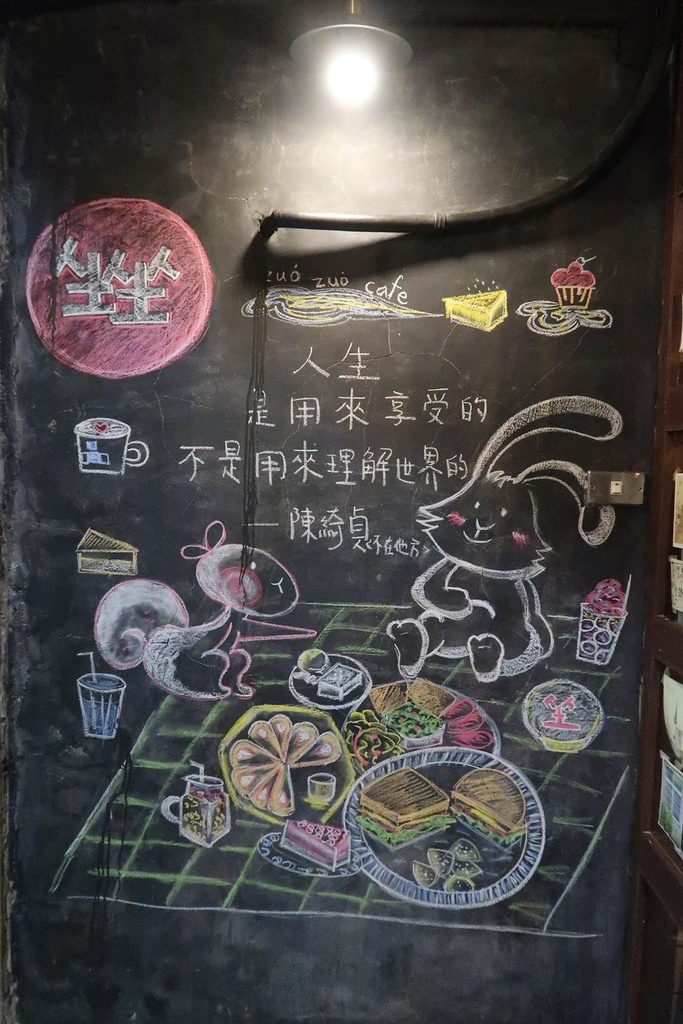 坐坐
zuó zuò cafe
人生
是用來享受的
不是用來理解世界的
—陳綺貞<不在他方>
坐